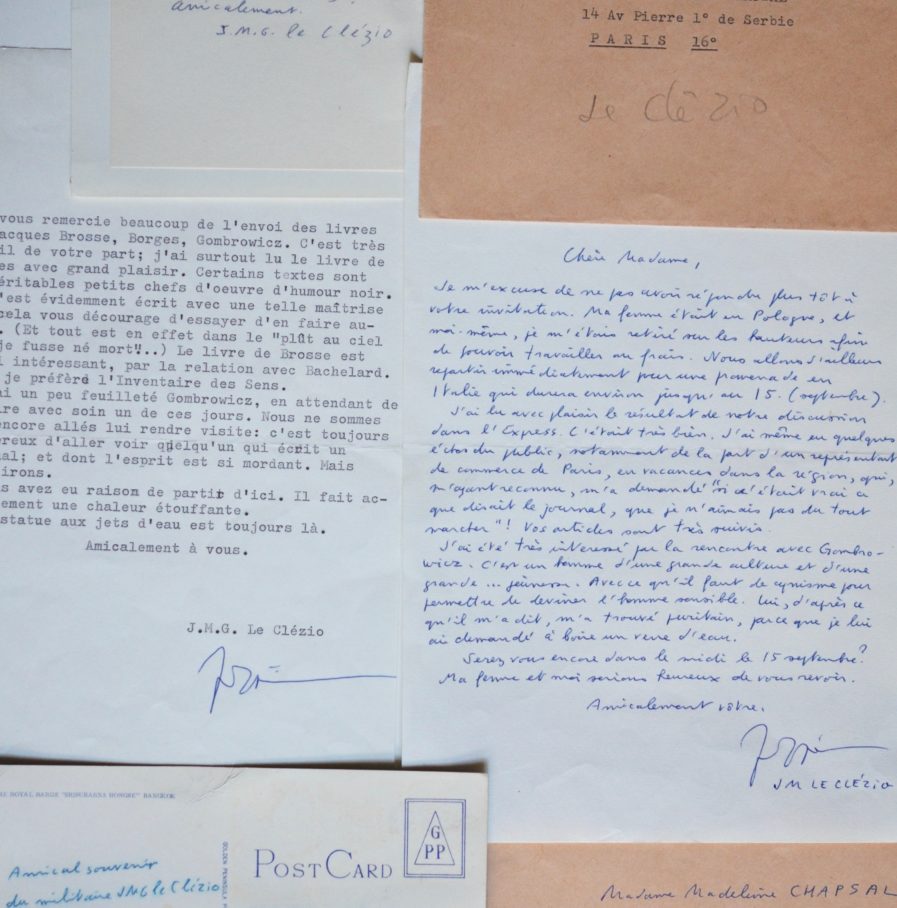 Amicalement.
J.M.G. le Clézio
14 Av Pierre 1° de Serbie
PARIS 16°
Le Clézio
vous remercie beaucoup de l'envoi des livres
acques Brosse, Borges, Gombrowicz. C'est très
il de votre part; j'ai surtout lu le livre de
es avec grand plaisir. Certains textes sont
éritables petits chefs d'oeuvre d'humour noir.
'est évidemment écrit avec une telle maîtrise
cela vous décourage d'essayer d'en faire au-
. (Et tout est en effet dans le "plût au ciel
je fusse né mort"..) Le livre de Brosse est
i intéressant, par la relation avec Bachelard.
je préfère l'Inventaire des Sens.
ai un peu feuilleté Gombrowicz, en attendant de
ire avec soin un de ces jours. Nous ne sommes
encore allés lui rendre visite: c'est toujours
ereux d'aller voir quelqu'un qui écrit un
al; et dont l'esprit est si mordant. Mais
irons.
s avez eu raison de partir d'ici. Il fait ac-
ement une chaleur étouffante.
statue aux jets d'eau est toujours là.
Amicalement à vous.
J.M.G. Le Clézio
Chère Madame,
Je m'excuse de ne pas avoir répondu plus tôt à
votre invitation. Ma femme était en Pologne, et
moi-même, je m'étais retiré sur les hauteurs afin
de pouvoir travailler au frais. Nous allons d'ailleurs
repartir immédiatement pour une promenade en
Italie qui durera environ jusqu'au 15. (septembre).
J'ai lu avec plaisir le résultat de notre discussion
dans l'Express. C'était très bien. J'ai même eu quelques
échos du public, notamment de la part d'un représentant
de commerce de Paris, en vacances dans la région, qui,
m'ayant reconnu, m'a demandé "si c'était vrai ce
que disait le journal, que je n'aimais pas du tout
marcher"! Vos articles sont très suivis.
J'ai été très intéressé par la rencontre avec Gombro-
wicz. C'est un homme d'une grande culture et d'une
grande ... jeunesse. Avec ce qu'il faut de cynisme pour
permettre de deviner l'homme sensible. Lui, d'après ce
qu'il m'a dit, m'a trouvé puritain, parce que je lui
ai demandé à boire un verre d'eau.
Serez vous encore dans le midi le 15 septembre?
Ma femme et moi serions heureux de vous revoir.
Amicalement vôtre.
JM LE CLÉZIO
ROYAL BARGE "SRISUBANNA HONGSE" BANGKOK
Amical souvenir
du militaire JMG le Clézio
POST CARD
G
PP
Madame Madeleine CHAPSAL